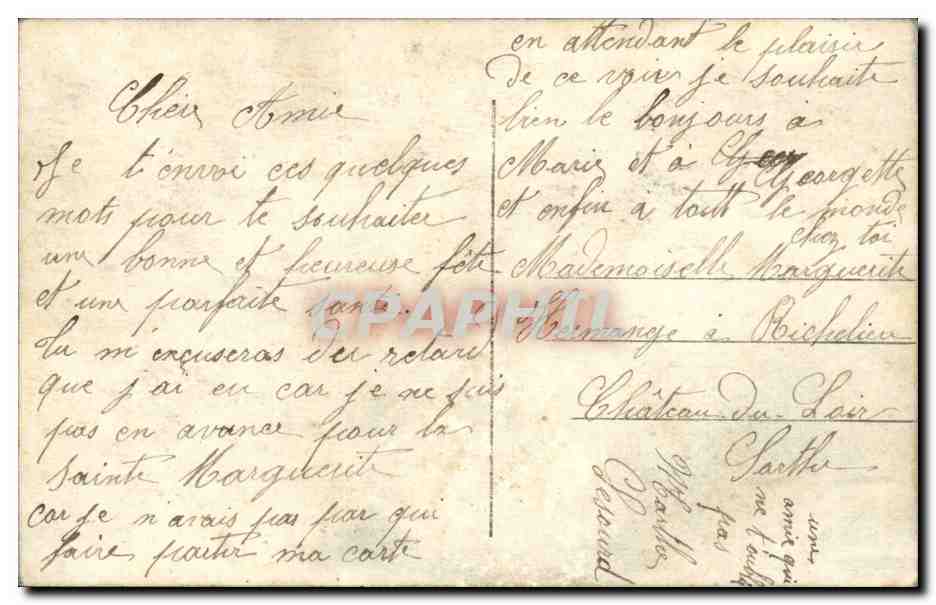 Chère Amie
Je t'envoi ces quelques
mots pour te souhaiter
une bonne et heureuse fête
et une parfaite santé.
Tu m'excuseras du retard
que j'ai eu car je ne suis
pas en avance pour la
Sainte Marguerite
car je n'avais pas par qui
faire partir ma carte
en attendant le plaisir
de ce voir je souhaite
bien le bonjours à
Marie et à Georgette
et enfin a tout le monde
chez toi
Mademoiselle Marguerite
Hermange à Richelieu
Château-du-Loir
Sarthe
une
amie qui
ne t'oublie
pas
Marthe
Lesourd
CPAPHIL